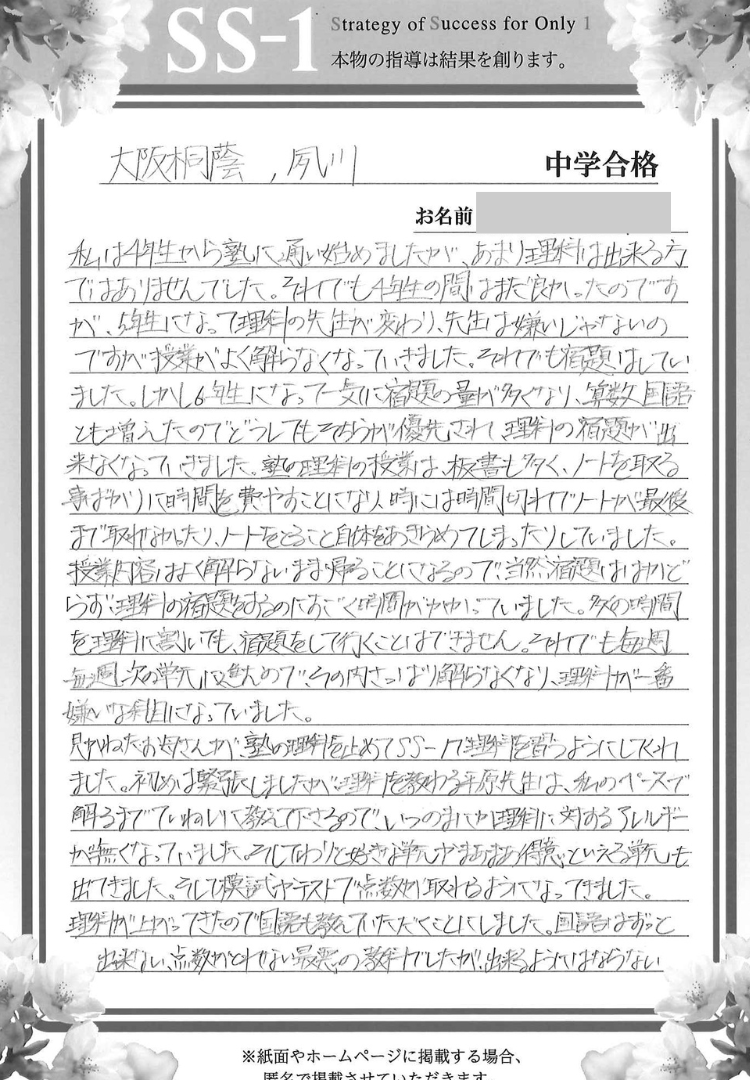 SS-1
Strategy of Success for Only 1
本物の指導は結果を創ります。
大阪桐蔭,夙川
中学合格
お名前
私は4年生から塾に通い始めましたが、あまり理科は出来る方
ではありませんでした。それでも4年生の間はまだ良かったのです
が、5年生になって理科の先生が変わり、先生は嫌いじゃないの
ですが授業がよく解らなくなっていきました。それでも宿題はしてい
ました。しかし6年生になって一気に宿題の量が多くなり、算数、国語
とも増えたのでどうしてもそちらが優先され、理科の宿題が出
来なくなっていきました。塾の理科の授業は、板書も多く、ノートを取る
事ばかりに時間を費やすことになり、時には時間切れでノートが最後
まで取れなかったり、ノートをとること自体をあきらめてしまったりしていました。
授業内容はよく解らないまま帰ることになるので、当然宿題ははかど
らず、理科の宿題をするのにすごく時間がかかっていました。多くの時間
を理科に割いても、宿題をして行くことはできません。それでも毎週
毎週次の単元に進むので、その内さっぱり解らなくなり、理科が一番
嫌いな科目になっていました。
見かねたお母さんが、塾の理科を止めてSS-1で理科を習うようにしてくれ
ました。初めは緊張しましたが、理科を教わる平原先生は、私のペースで
解るまでていねいに教えて下さるので、いつのまにか理科に対するアレルギー
が無くなっていました。そしてわりと好きな単元やまあまあ得意といえる単元も
出てきました。そして模試やテストで点数が取れるようになってきました。
理科が上がってきたので国語も教えていただくことにしました。国語はずっと
出来ない、点数がとれない最悪の教科でしたが、出来るようにはならない
※紙面やホームページに掲載する場合、
匿名で掲載させていただきます。